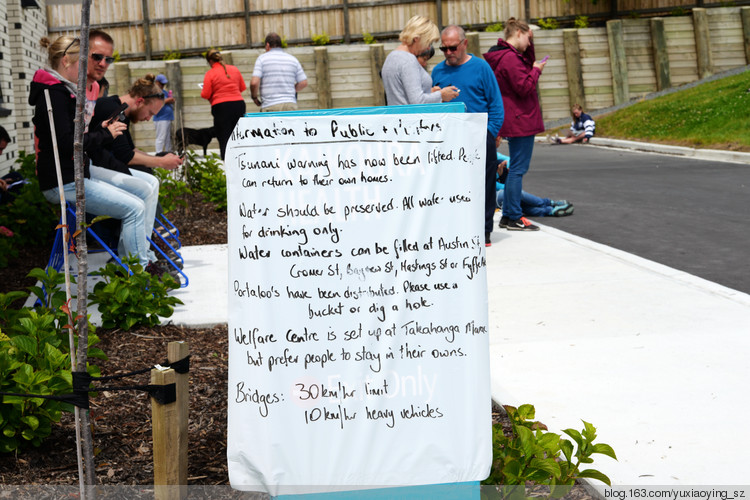 Information to Public + Visitors
Tsunami warning has now been lifted. People
can return to their own homes.
Water should be preserved. All water used
for drinking only.
Water containers can be filled at Austin St,
Gromer St, St, Hastings St or Fyffe
Portaloo's have been distributed. Please use a
bucket or dig a hole.
Welfare Centre is set up at Takahanga Marae
but prefer people to stay in their owns.
Bridges: 30km/hr limit
10km/hr heavy vehicles
Only
blog.163.com/yuxiaoying_sz